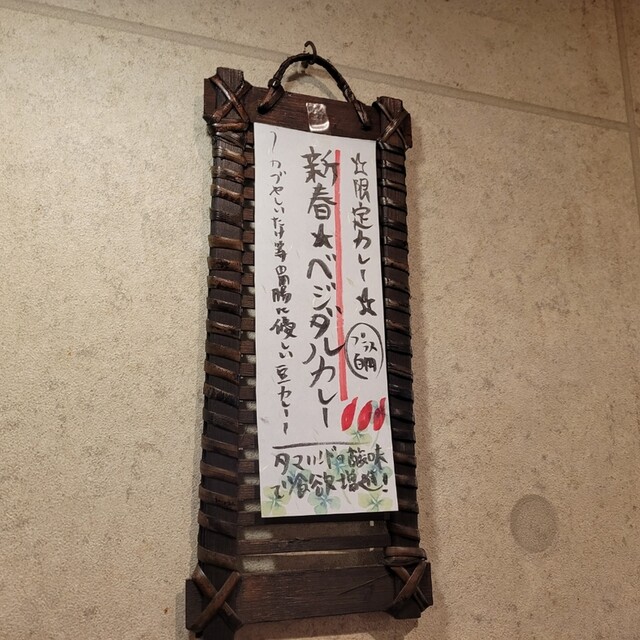 ☆限定カレー☆
プラス
百円
新春★ベジタルカレー
〜カブやしいたけ等胃腸に優しい豆カレー〜
タマリンドの酸味
で食欲増進!